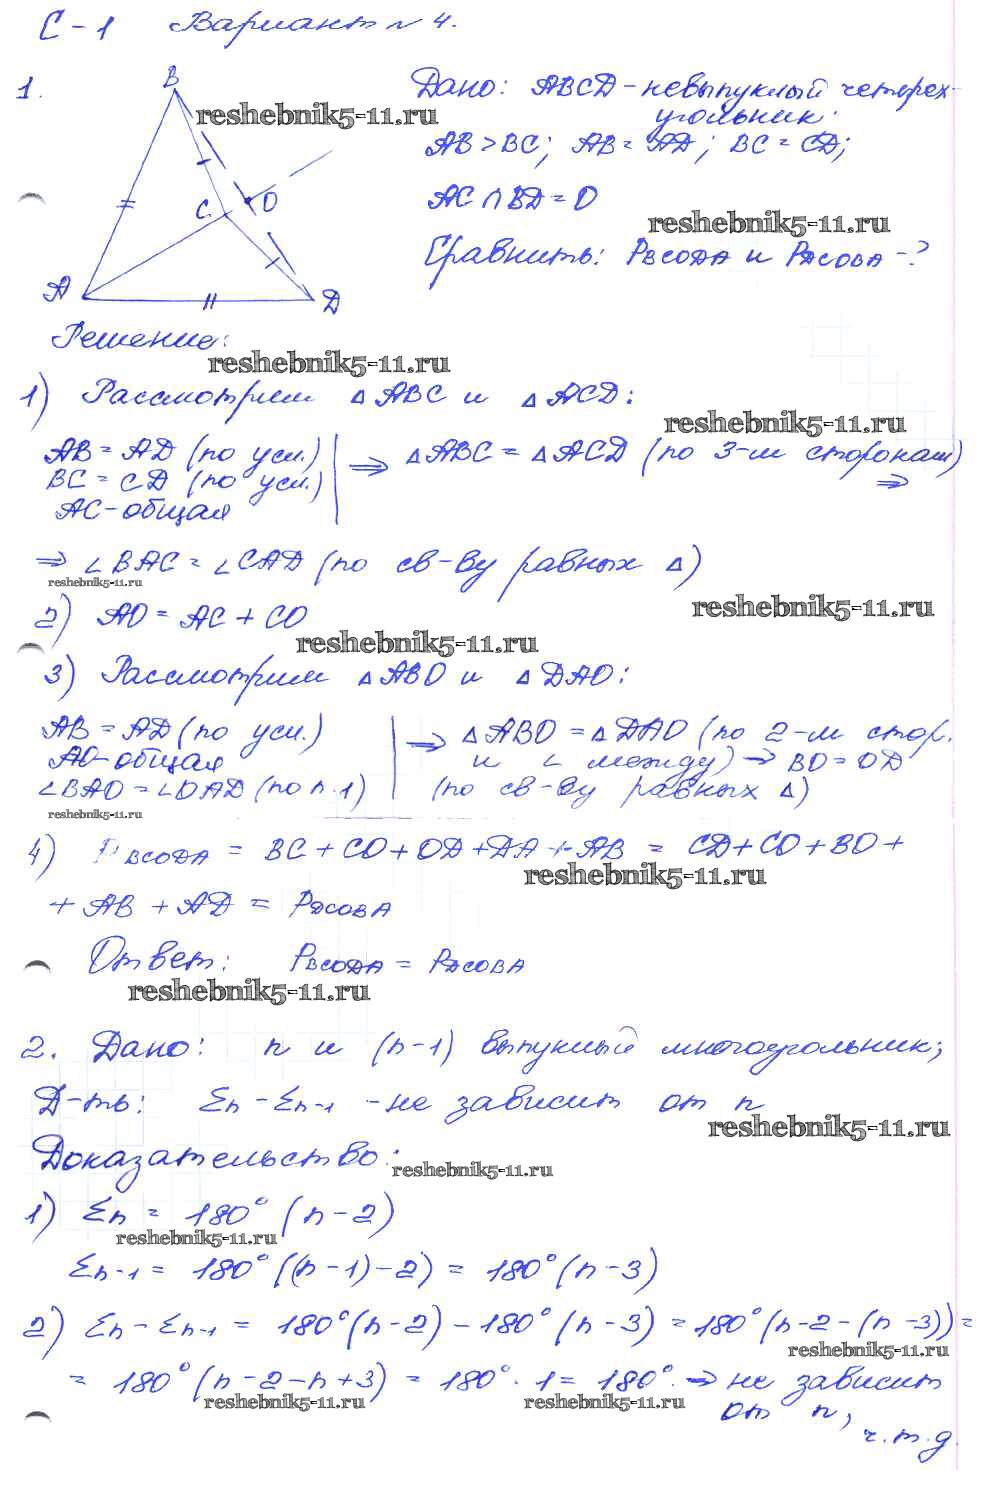 С-1 Вариант № 4.
1.
B
reshebnik5-11.ru
Дано: ABCD - невыпуклый четырех-
угольник.
AB > BC; AB = AD; BC = CD;
C
O
AC ∩ BD = O
reshebnik5-11.ru
Сравнить: PBCODA и PDCOBA - ?
A
D
Решение:
reshebnik5-11.ru
1) Рассмотрим △ABC и △ACD:
reshebnik5-11.ru
AB = AD (по усл.) | ⇒ △ABC = △ACD (по 3-м сторонам) ⇒
BC = CD (по усл.)
AC - общая
⇒ ∠BAC = ∠CAD (по св-ву равных △)
reshebnik5-11.ru
reshebnik5-11.ru
2) AO = AC + CO
reshebnik5-11.ru
3) Рассмотрим △ABO и △DAO:
AB = AD (по усл.) | ⇒ △ABO = △DAO (по 2-м стор.
AO - общая и ∠ между) ⇒ BO = OD
∠BAO = ∠OAD (по п.1) (по св-ву равных △)
reshebnik5-11.ru
4) PBCODA = BC + CO + OD + DA + AB = CD + CO + BO +
reshebnik5-11.ru
+ AB + AD = PDCOBA
Ответ: PBCODA = PDCOBA
reshebnik5-11.ru
2. Дано: n и (n-1) выпуклый многоугольник;
Д-ть: Σn - Σn-1 - не зависит от n
reshebnik5-11.ru
Доказательство:
reshebnik5-11.ru
1) Σn = 180° (n-2)
reshebnik5-11.ru
Σn-1 = 180° ((n-1)-2) = 180° (n-3)
2) Σn - Σn-1 = 180° (n-2) - 180° (n-3) = 180° (n-2-(n-3)) =
reshebnik5-11.ru
= 180° (n-2-n+3) = 180° · 1 = 180°. ⇒ не зависит
reshebnik5-11.ru
reshebnik5-11.ru
от n,
ч.т.д.